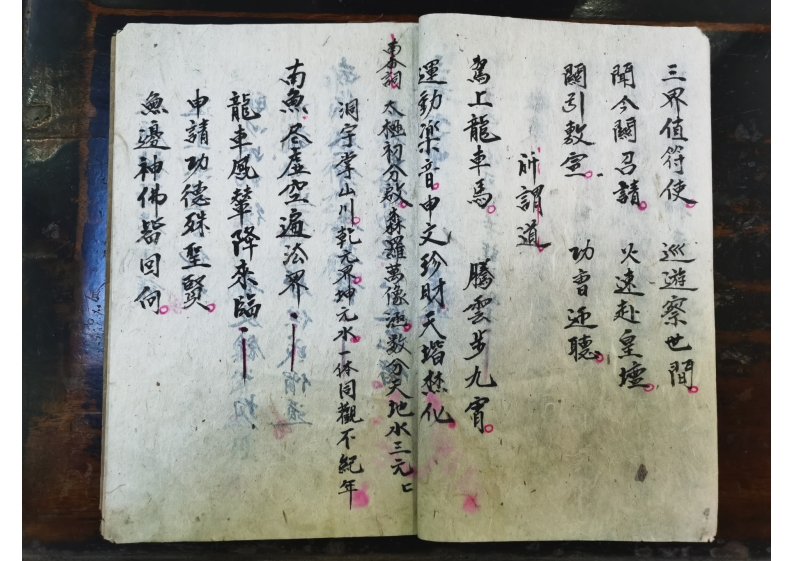 三界值符使 巡遊察世間
聞今關召請 火速赴皇壇
關引敷宣 功曹迊聽
所謂道
駕上龍車馬 騰雲步九霄
運動樂音申文钞財天堦焚化
南無 太極初分啟森羅萬像 數分天地水三元
洞宇掌山川乾元界坤元水一体同觀不紀年
南無尽虛空遍法界
龍車鳳輦降來臨
申請功德殊聖賢
無邊神佛皆回向